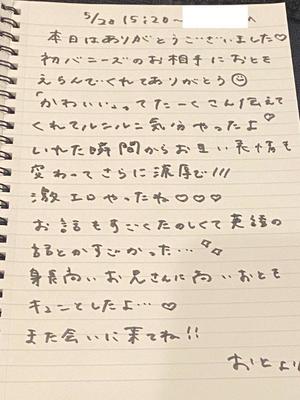 5/20 15:20〜
本日はありがとうございました♡
初バニーズのお相手におとを
えらんでくれてありがとう☺
「かわいい」ってたーくさん伝えて
くれてルンルン気分やったよ♡
いれた瞬間からお互い表情も
変わってさらに濃厚で!!!
激エロやったね♡♡♡
お話もすごくたのしくて英語の
話とかすごかった…✧✧
身長高いお兄さんに向いおとも
キュンとしたよ…♡
また会いに来てね!!
おとより